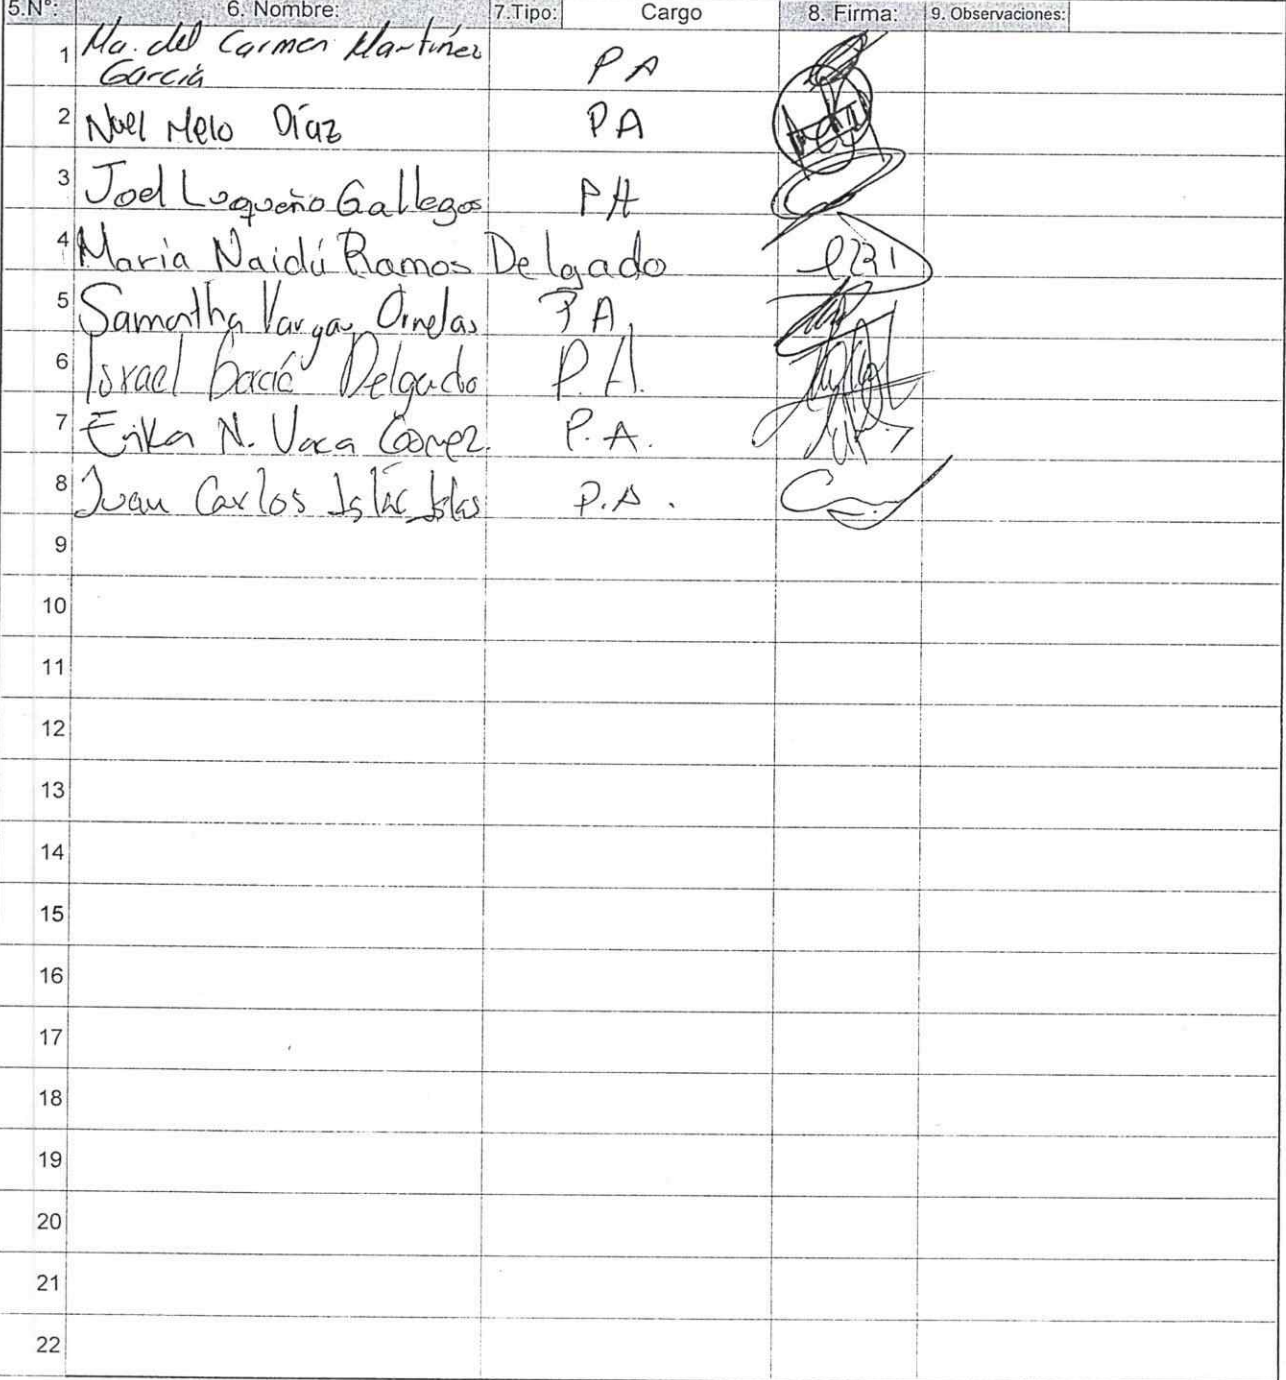 5.N°: 6. Nombre: 7.Tipo: Cargo 8. Firma: 9. Observaciones:
1 Ma. del Carmen Martínez
García PA
2 Noel Melo Díaz PA
3 Joel Luqueño Gallegos PA
4 María Naidú Ramos Delgado
5 Samantha Vargas Ornelas PA.
6 Israel García Delgado P.A.
7 Erika N. Vaca Gómez. P.A.
8 Juan Carlos Islas Islas P.A.
9
10
11
12
13
14
15
16
17
18
19
20
21
22